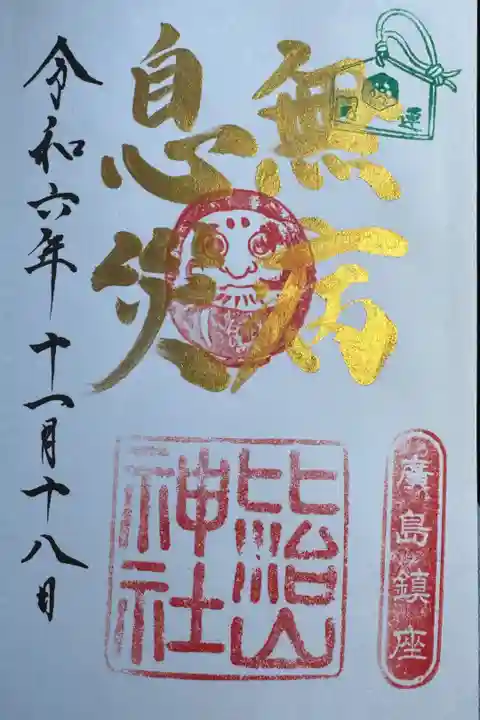 運
無病
息災
廣島鎮座
比治山
神社
令和六年十一月十八日